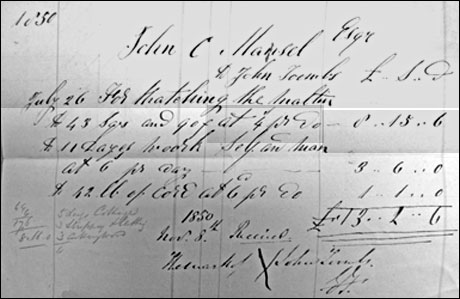 1850
John C Mansel Esqr
to John Toombs £ .. S .. d
July 26 For thatching the
to 43 Sqs and 90f at 4/ pr Do — 8 .. 15 .. 6
to 11 Days work Self and man
at 6 pr day — 3 .. 6 .. 0
to 42 lb of Cord at 6 pr Do 1 .. 1 .. 0
£13 .. 2 .. 6
1850
Nov. 8th Received
The mark of X John Toombs